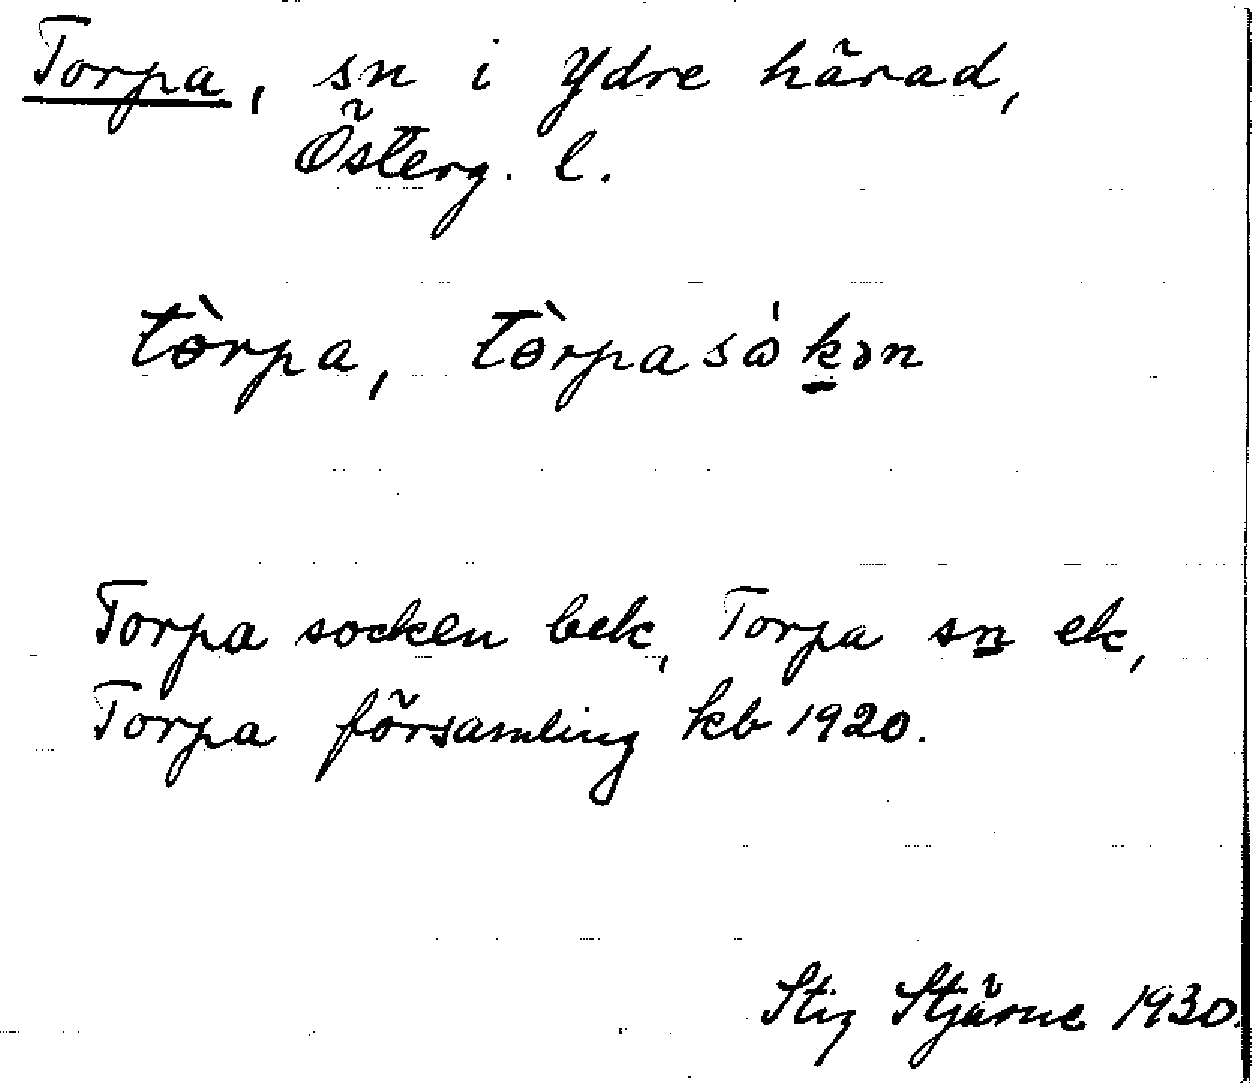 Torpa, sn i Ydre härad,
Österg. l.
tɵ̀rpa, tɵ̀rpasὼk̲ən
Torpa socken bek, Torpa sn ek,
Torpa församling kb 1920.
Stig Stjärne 1930.